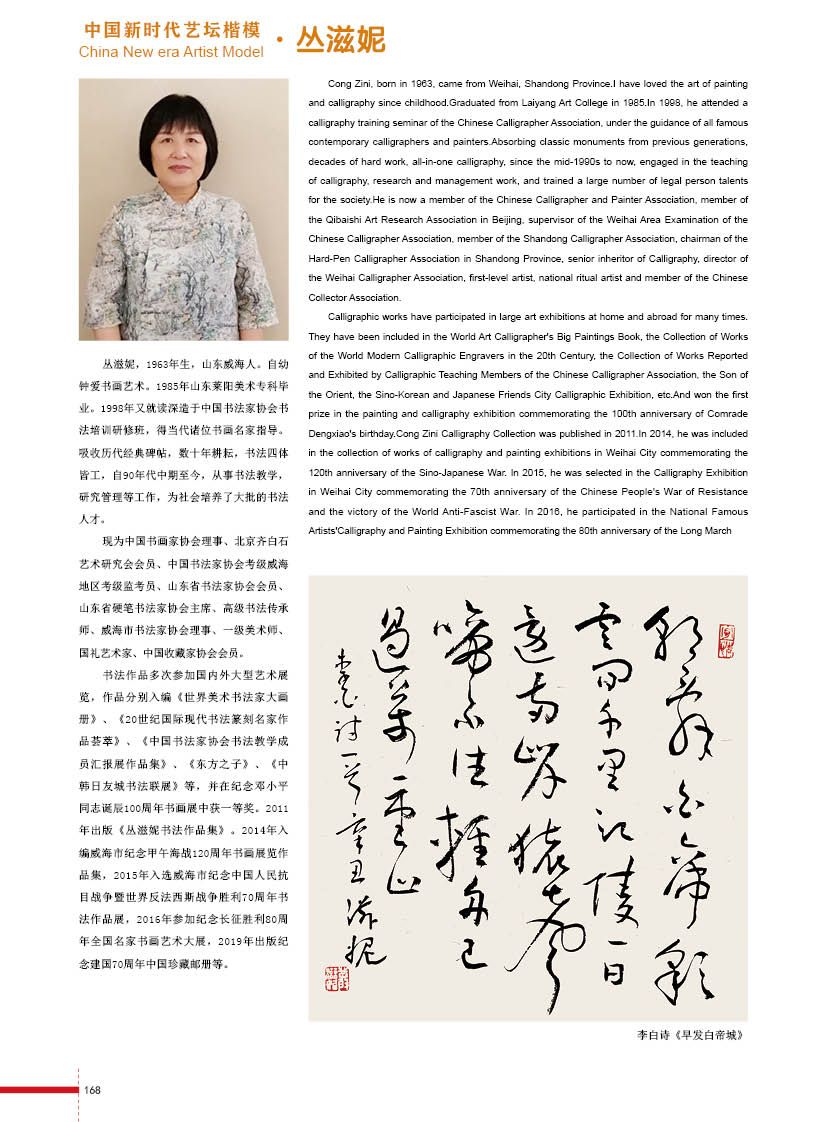 中国新时代艺坛楷模
China New era Artist Model
· 丛滋妮
Cong Zini, born in 1963, came from Weihai, Shandong Province.I have loved the art of painting
and calligraphy since childhood.Graduated from Laiyang Art College in 1985.In 1998, he attended a
calligraphy training seminar of the Chinese Calligrapher Association, under the guidance of all famous
contemporary calligraphers and painters.Absorbing classic monuments from previous generations,
decades of hard work, all-in-one calligraphy, since the mid-1990s to now, engaged in the teaching
of calligraphy, research and management work, and trained a large number of legal person talents
for the society.He is now a member of the Chinese Calligrapher and Painter Association, member of
the Qibaishi Art Research Association in Beijing, supervisor of the Weihai Area Examination of the
Chinese Calligrapher Association, member of the Shandong Calligrapher Association, chairman of the
Hard-Pen Calligrapher Association in Shandong Province, senior inheritor of Calligraphy, director of
the Weihai Calligrapher Association, first-level artist, national ritual artist and member of the Chinese
Collector Association.
Calligraphic works have participated in large art exhibitions at home and abroad for many times.
They have been included in the World Art Calligrapher's Big Paintings Book, the Collection of Works
of the World Modern Calligraphic Engravers in the 20th Century, the Collection of Works Reported
and Exhibited by Calligraphic Teaching Members of the Chinese Calligrapher Association, the Son of
the Orient, the Sino-Korean and Japanese Friends City Calligraphic Exhibition, etc.And won the first
prize in the painting and calligraphy exhibition commemorating the 100th anniversary of Comrade
Dengxiao's birthday.Cong Zini Calligraphy Collection was published in 2011.In 2014, he was included
in the collection of works of calligraphy and painting exhibitions in Weihai City commemorating the
120th anniversary of the Sino-Japanese War. In 2015, he was selected in the Calligraphy Exhibition
in Weihai City commemorating the 70th anniversary of the Chinese People's War of Resistance
and the victory of the World Anti-Fascist War. In 2016, he participated in the National Famous
Artists'Calligraphy and Painting Exhibition commemorating the 80th anniversary of the Long March
丛滋妮，1963年生，山东威海人。自幼
钟爱书画艺术。1985年山东莱阳美术专科毕
业。1998年又就读深造于中国书法家协会书
法培训研修班，得当代诸位书画名家指导。
吸收历代经典碑帖，数十年耕耘，书法四体
皆工，自90年代中期至今，从事书法教学，
研究管理等工作，为社会培养了大批的书法
人才。
现为中国书画家协会理事、北京齐白石
艺术研究会会员、中国书法家协会考级威海
地区考级监考员、山东省书法家协会会员、
山东省硬笔书法家协会主席、高级书法传承
师、威海市书法家协会理事、一级美术师、
国礼艺术家、中国收藏家协会会员。
书法作品多次参加国内外大型艺术展
览，作品分别入编《世界美术书法家大画
册》、《20世纪国际现代书法篆刻名家作
品荟萃》、《中国书法家协会书法教学成
员汇报展作品集》、《东方之子》、《中
韩日友城书法联展》等，并在纪念邓小平
同志诞辰100周年书画展中获一等奖。2011
年出版《丛滋妮书法作品集》。2014年入
编威海市纪念甲午海战120周年书画展览作
品集，2015年入选威海市纪念中国人民抗
日战争暨世界反法西斯战争胜利70周年书
法作品展，2016年参加纪念长征胜利80周
年全国名家书画艺术大展，2019年出版纪
念建国70周年中国珍藏邮册等。
朝辞白帝彩
云间千里江陵一日
还两岸猿声
啼不住轻舟已
过万重山
李白诗一首辛丑滋妮
李白诗《早发白帝城》
168